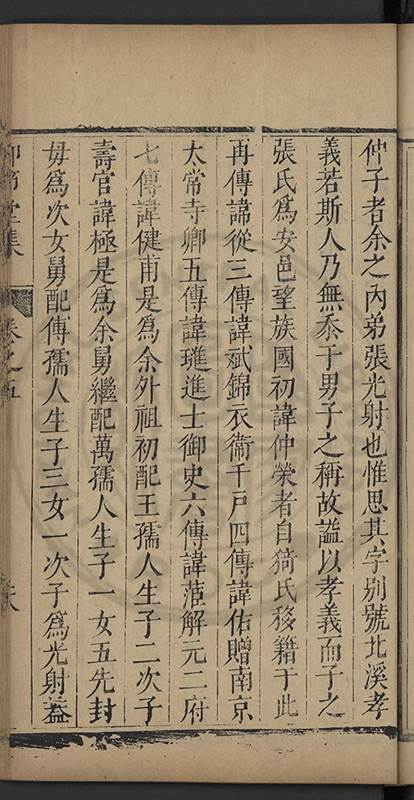 仲子者余之內弟張光射也惟思其字別號北溪孝
義若斯人乃無忝于男子之稱故謚以孝義而子之
張氏爲安邑望族國初諱仲榮者自猗氏移籍于此
再傳諱從三傳諱斌錦衣衞千戸四傳諱佑贈南京
太常寺卿五傳諱璡進士御史六傳諱蒞解元二府
七傳諱健甫是爲余外祖初配王孺人生子二次子
壽官諱極是爲余舅繼配萬孺人生子一女五先封
母爲次女舅配傳孺人生子三女一次子爲光射益
仰節堂集 卷之五